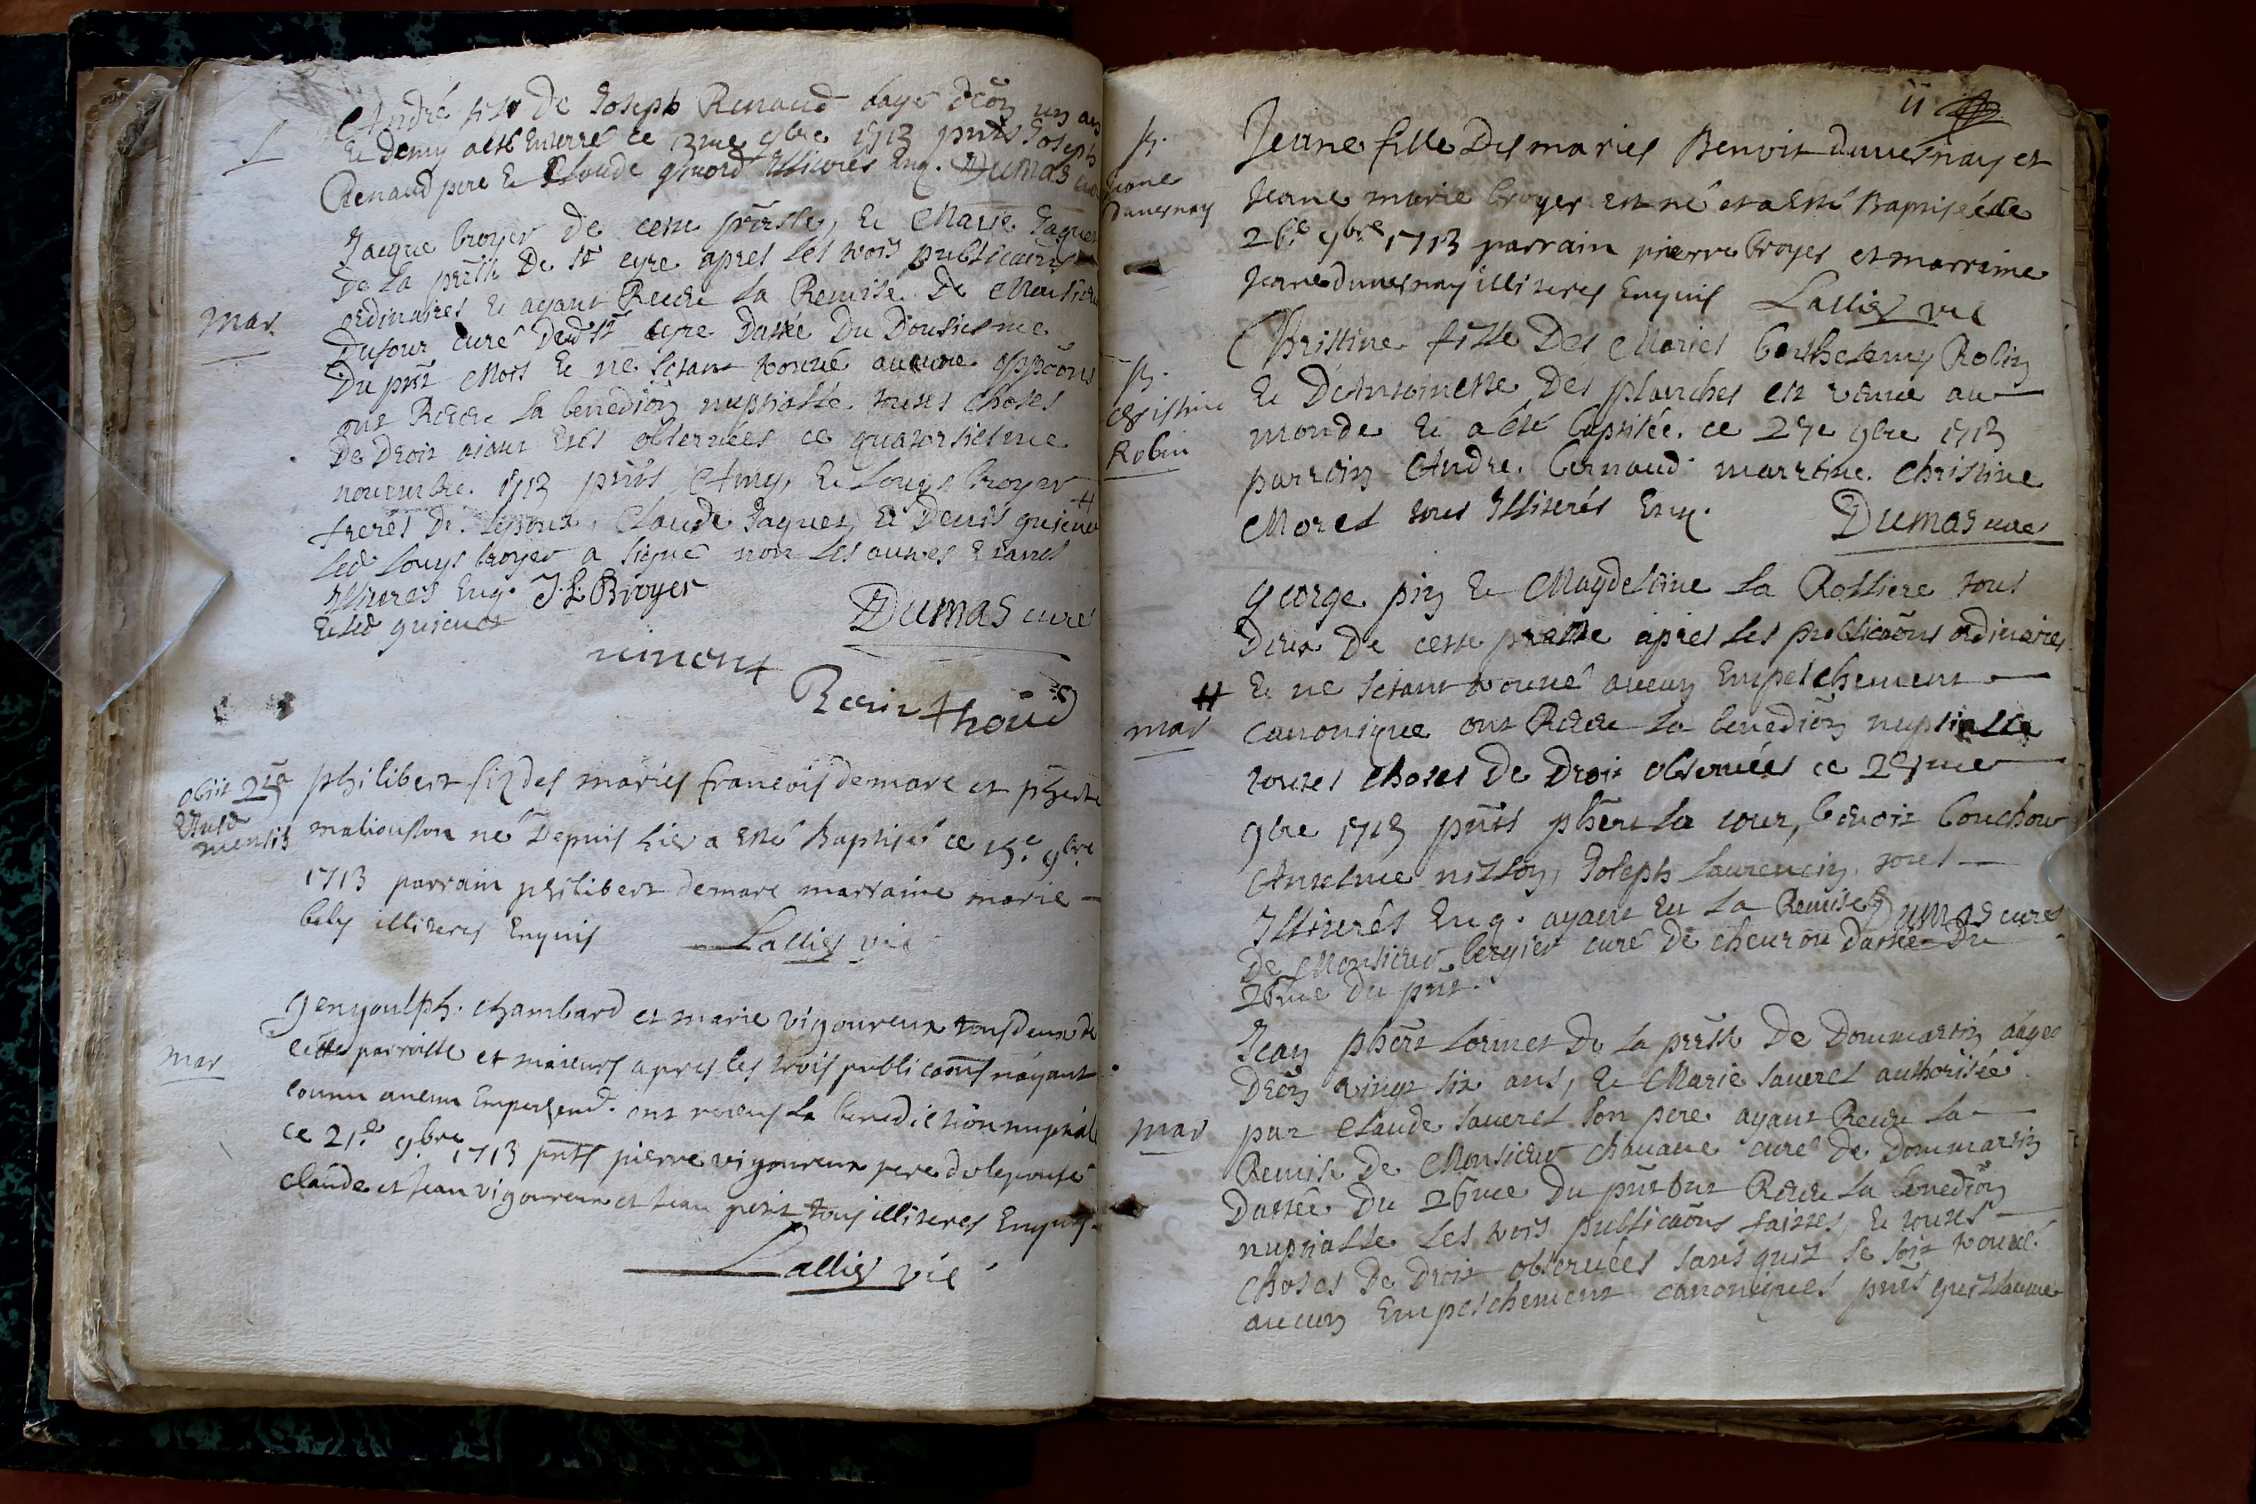 André fils De Joseph Renaud aagé d'eön un an
Et Demy a esté Enterré ce 9bre 1713 pnts Joseph
Renaud pere Et Claude Illiterés Enq. Dumas curé
Jacque broyer De cette prsse, Et Marie Jaquet
De La prsse De St eyre apres les trois publicaõns
ordinaires Et ayant Receu La Remise De Monsieur
Dufour curé Dud St eyre Dattée Du Dousiesme
Du pnt Mois Et ne sétant trouvé aucune oppoõns
ont Receu La benediõn nuptialle toutes choses
De Droit aiant Estés observées ce quatorsiesme
mar
novembre 1713 pnts Amy, Et Louys broyer
freres De Lepoux, Claude Jaquet, Et Denis
Led Louys broyer a signé non les autres Etants
Illiterés Enq. J. L. Broyer
Et led
Dumas curé
philibert fiz des mariés francois demare et phberte
ne Depuis hier a esté Baptisé ce 15.e 9bre
1713 parrain philibert demare marraine marie
bely illiteres Enquis Lallier vic
obiit
mensis
gengoulph chambard et marie vigoureux tous deux de
cette parroisse et maieurs apres les trois publicaõns n'ayant
connu aucun Empeschemt. ont receus la benediction nuptiale
ce 21.e 9bre 1713 pnts pierre vigoureux pere de lepouse
claude et Jean vigoureux et Jean petit tous illiteres Enquis
mar
Lallier vic
11
Jeane fille Des mariés Benoit duvernay et
Jeane marie broyer est né et a Esté Baptisée le
26.e 9bre 1713 parrain pierre broyer et marraine
Jeane duvernay illiteres Enquis Lallier vic
B.
Jeane
Duvernay
Christine fille Des Mariés barthelemy Robin
Et D'Antoinette Des planches est venue au
monde Et a esté baptisée ce 27e 9bre 1713
parrein Andre bernaud marrene Christine
Morel tous Illiterés Enq. Dumas curé
B.
Christine
Robin
George pin Et Magdeleine La Rossiere tous
Deux De cette prsse apres Les publicaõns ordinaires
Et ne sétant trouvé aucun Empeschement
canonique ont Receu La benediõn nuptialle
toutes choses De Droit observées ce 27me
9bre 1713 pnts phbert La cour, benoit bouchour
Anselme nillon, Joseph Laurencin, tous
Illiterés Enq. ayant Eu La Remise Dumas curé
De Monsieur bergier curé De chevrou Dattée Du
26me Du pnt.
mar
Jean phbert Cornet De La prsse De Dommartin aagé
D'eön vingt six ans, Et Marie Saverel authorisée
par Claude Saverel son pere ayant Receu La
Remise De Monsieur chavane curé De Dommartin
Dattée Du 26me Du pnt ont Receu La benediõn
nuptialle Les trois publicaõns faittes, Et toutes
choses De Droit observées sans quil se soit trouvé
aucun Empeschement canoniques pnts guillaume
mar